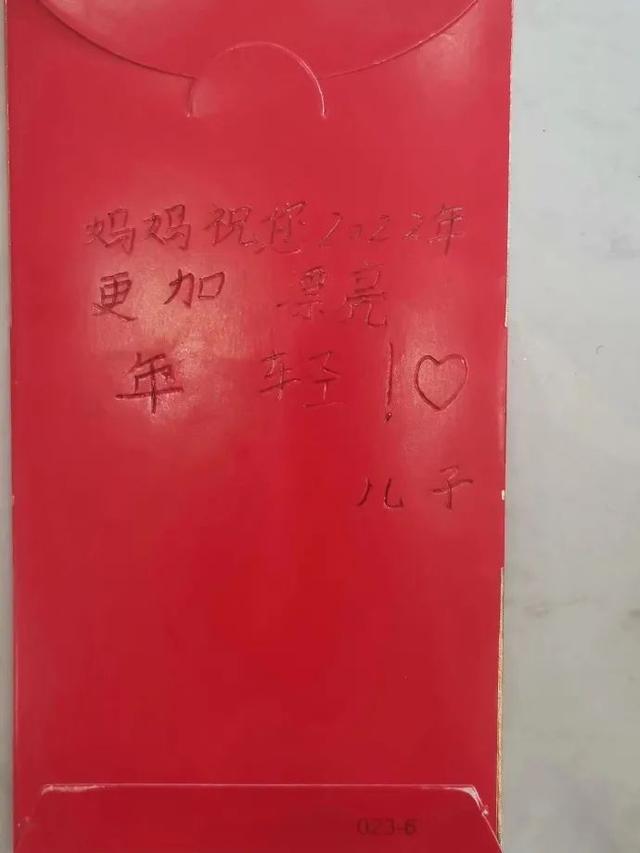 妈妈祝您2022年
更加漂亮
年轻!♡
儿子
023-6